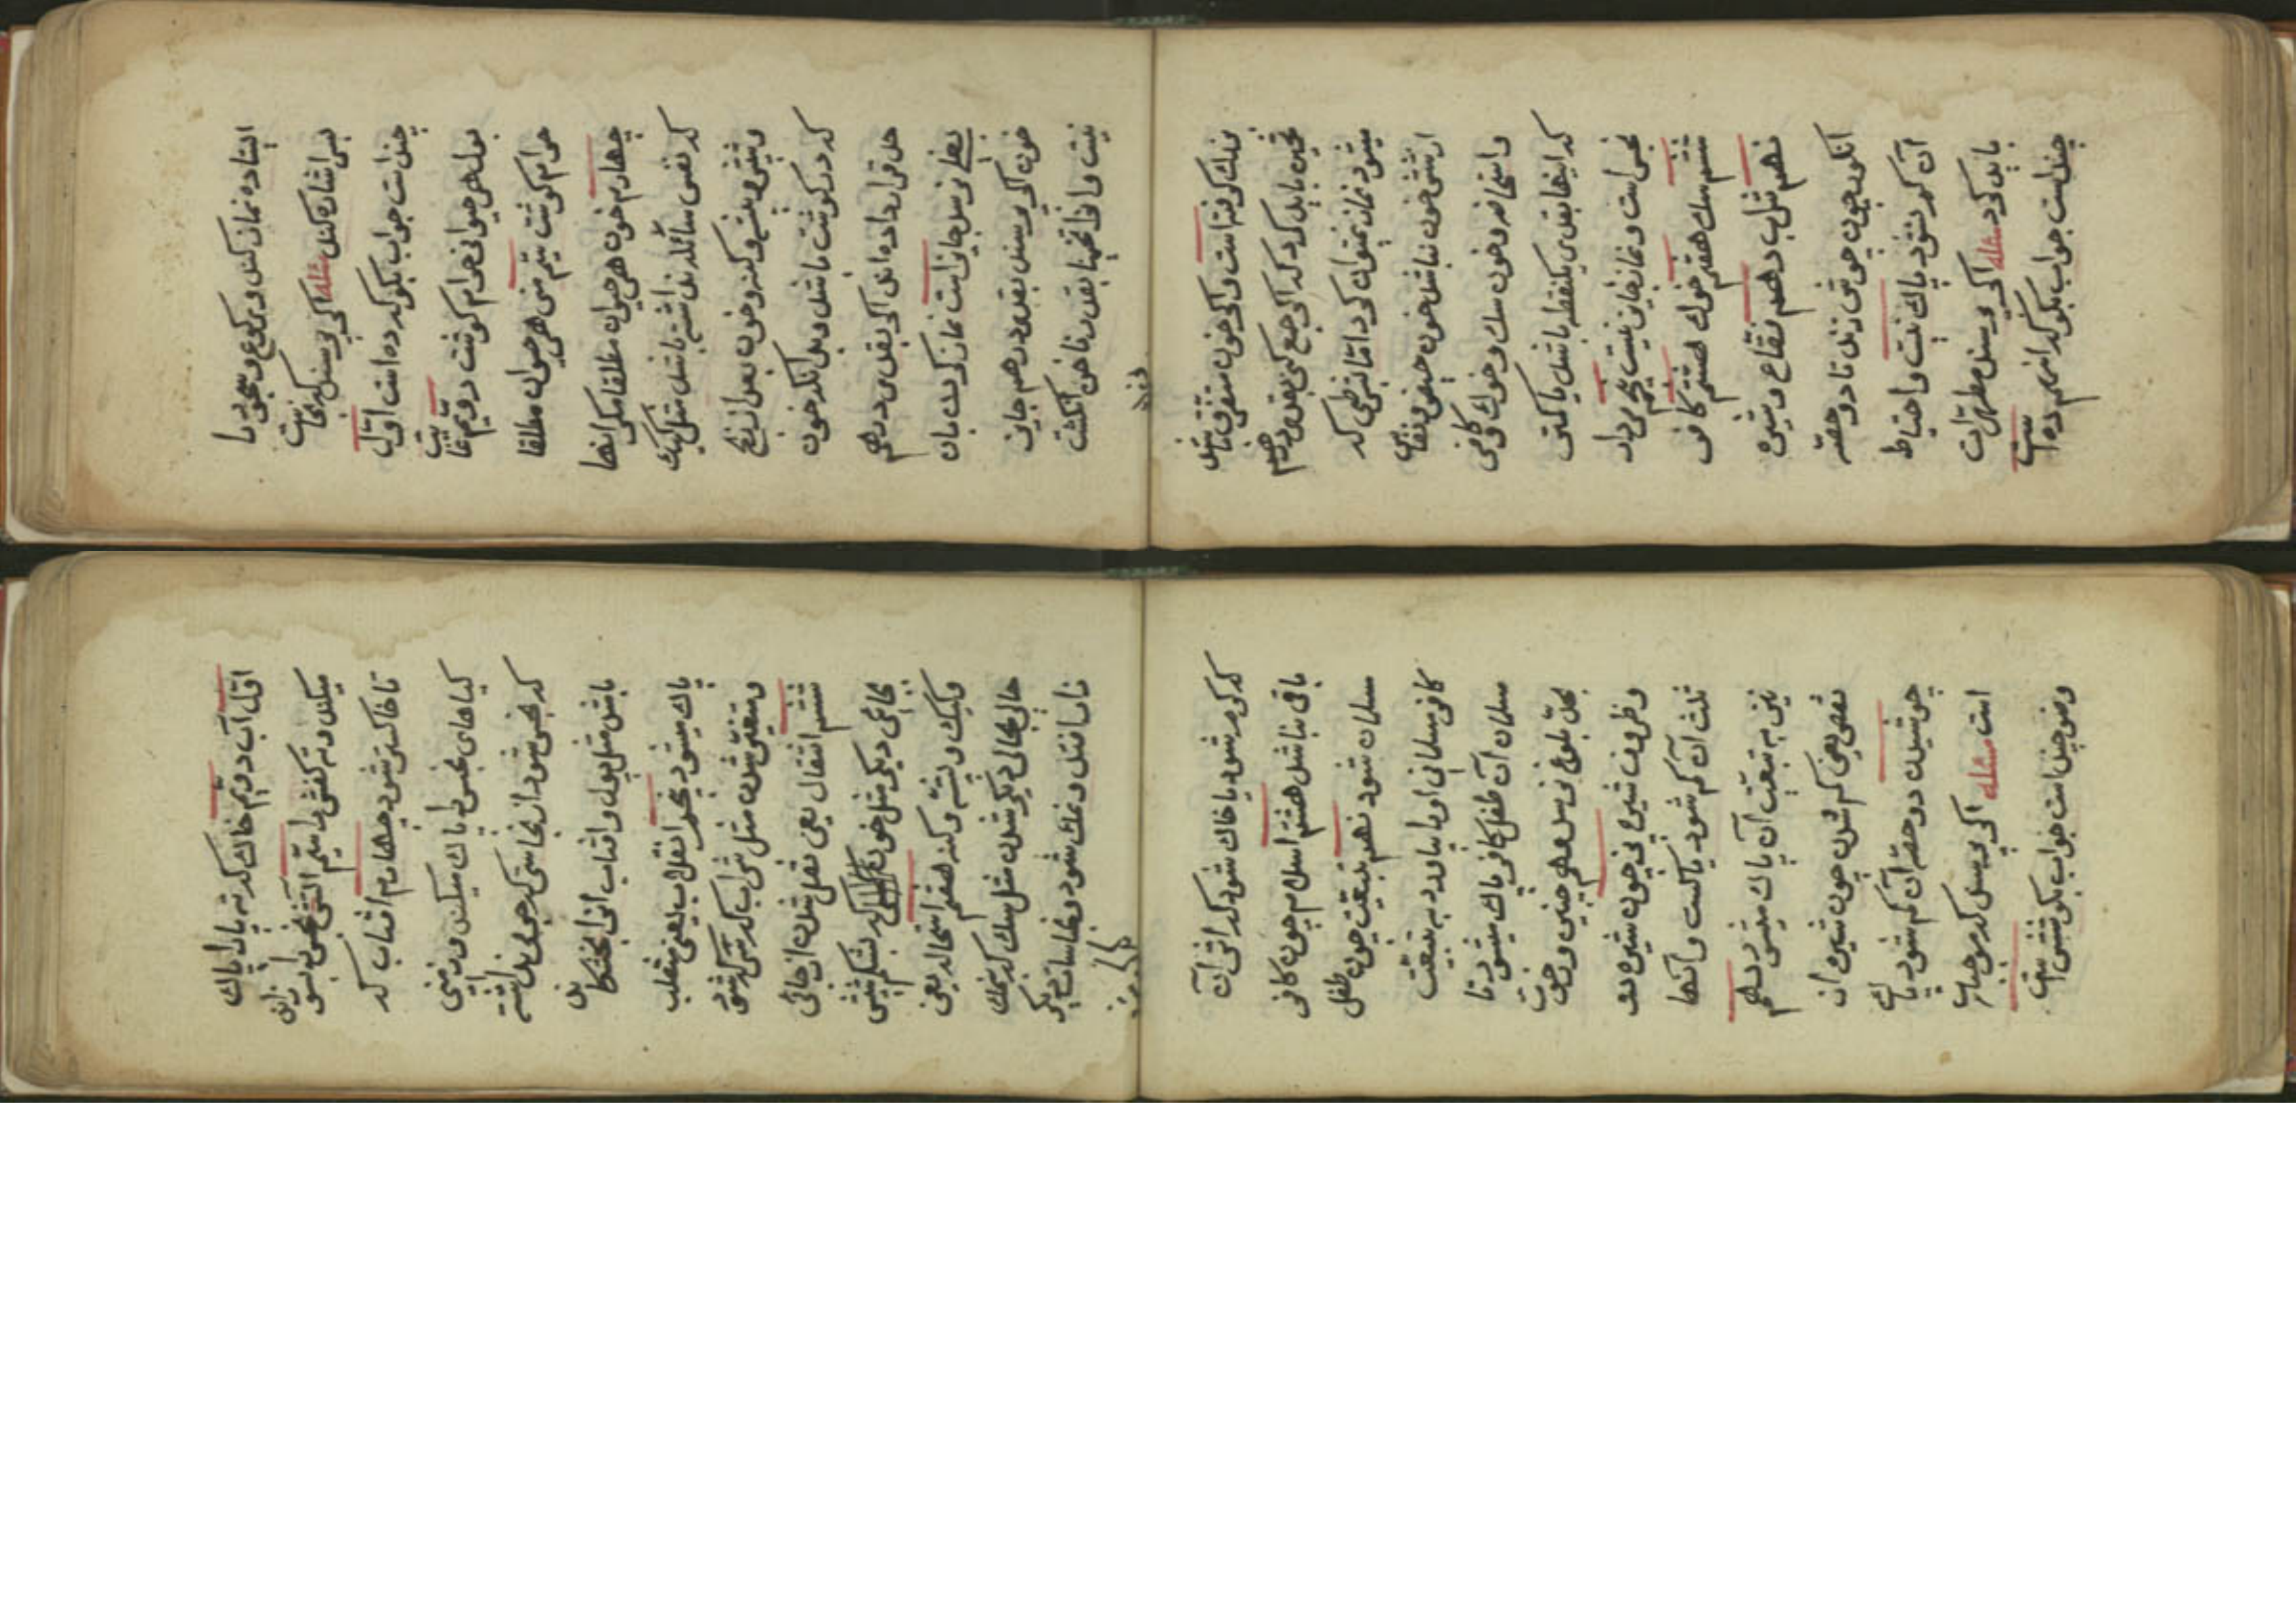 ایستاده نماز کند و برکوع و سجود را
بس اشاره کند مسئله اکر پرسند که نجاست
چند است جواب بکو که ده است اوّل
بول هر حیوانی حرام کوشت دویّم غایت
حرام کوشت سیّم منی هر حیوان مطلقا
چهارم خون هر حیوان مطلقا مکر انها
که نفس سائله نداشته باشند مثل کیک
وشپش و پشه و کنه و خون بعد از ذبح
که در کوشت باشد و بدانکه خون
حل قرار داده اند اکر بقدر درهم
بغلی نرسد جایز است نماز کردن بان
خون اکر پرسند بقدر درهم جایز
نیست و انرا تخمینا بقدر ناخن انکشت
بزرك کرفته است و اکر خون متفرق باشد
تخمین باید کرد که اکر جمع کنی بقدر درهم
میشود نماز نمیتوان کرد امّا بشرطی که
ان خون نباشد خون حیض و نفاس
و استحاضه و خون سك و خوك و کافر
که اینها بقدر یکنقطه باشد یا کمتر
نجس است و نماز جایز نیست پنجم مردار
ششم سك هفتم خوك هشتم کافر
نهم شراب دهم فقاع و شیره
انکور چون جوش زند تا دو حصّه
ان کم نشود پاك نیست و احتیاط
باید کرد مسئله اکر پرسند مطهرات
چند است جواب بکو که انهم ده است
اوّل آب دویّم خاك که ته پا را پاك
میکند و ته کفش را سیّم اتش نجس را بسوزاند
تا خاکستر شود چهارم افتاب که
کیاهای نجس را پاك میکند و زمینی
که نجس شود از نجاستی که جرمی نداشته
باشد مثل بول و افتاب انرا بخشکاند
پاك میشود پنجم انقلاب یعنی منقلب
و متغیّر شدن مثل شراب که سرکه شود
ششم انتقال یعنی نقل شدن از جائی
بجاعی دیکر مثل خون که بشکم شپش
و کیك و پشّه و کنه هفتم استحاله یعنی
حالی بحالی دیکر شدن مثل سك که بنمك
زار افتد و نمك شود و نجاسات دیکر
که کرم شود یا خاك شود که اثر آن
باقی نباشد هشتم اسلام چون کافر
مسلمان شود نهم تبعیّت چون طفل
کافر مسلمانی او را بیاورد به تبعیّت
مسلمان آن طفل کافر پاك میشود تا
بحدّ بلوغ نرسد و همچنین ظرف
وظروف شیره پز چون شیره دو
ثلث ان کم شود پاکست و انها
نیز به تبعیّت آن پاك میشود دهم
نقص یعنی کم شدن چون شیره از
جوشیدن دو حصّه آن کم شود پاك
است مسئله اکر پرسند که موجبات
وضو چند است جواب بکو شش است